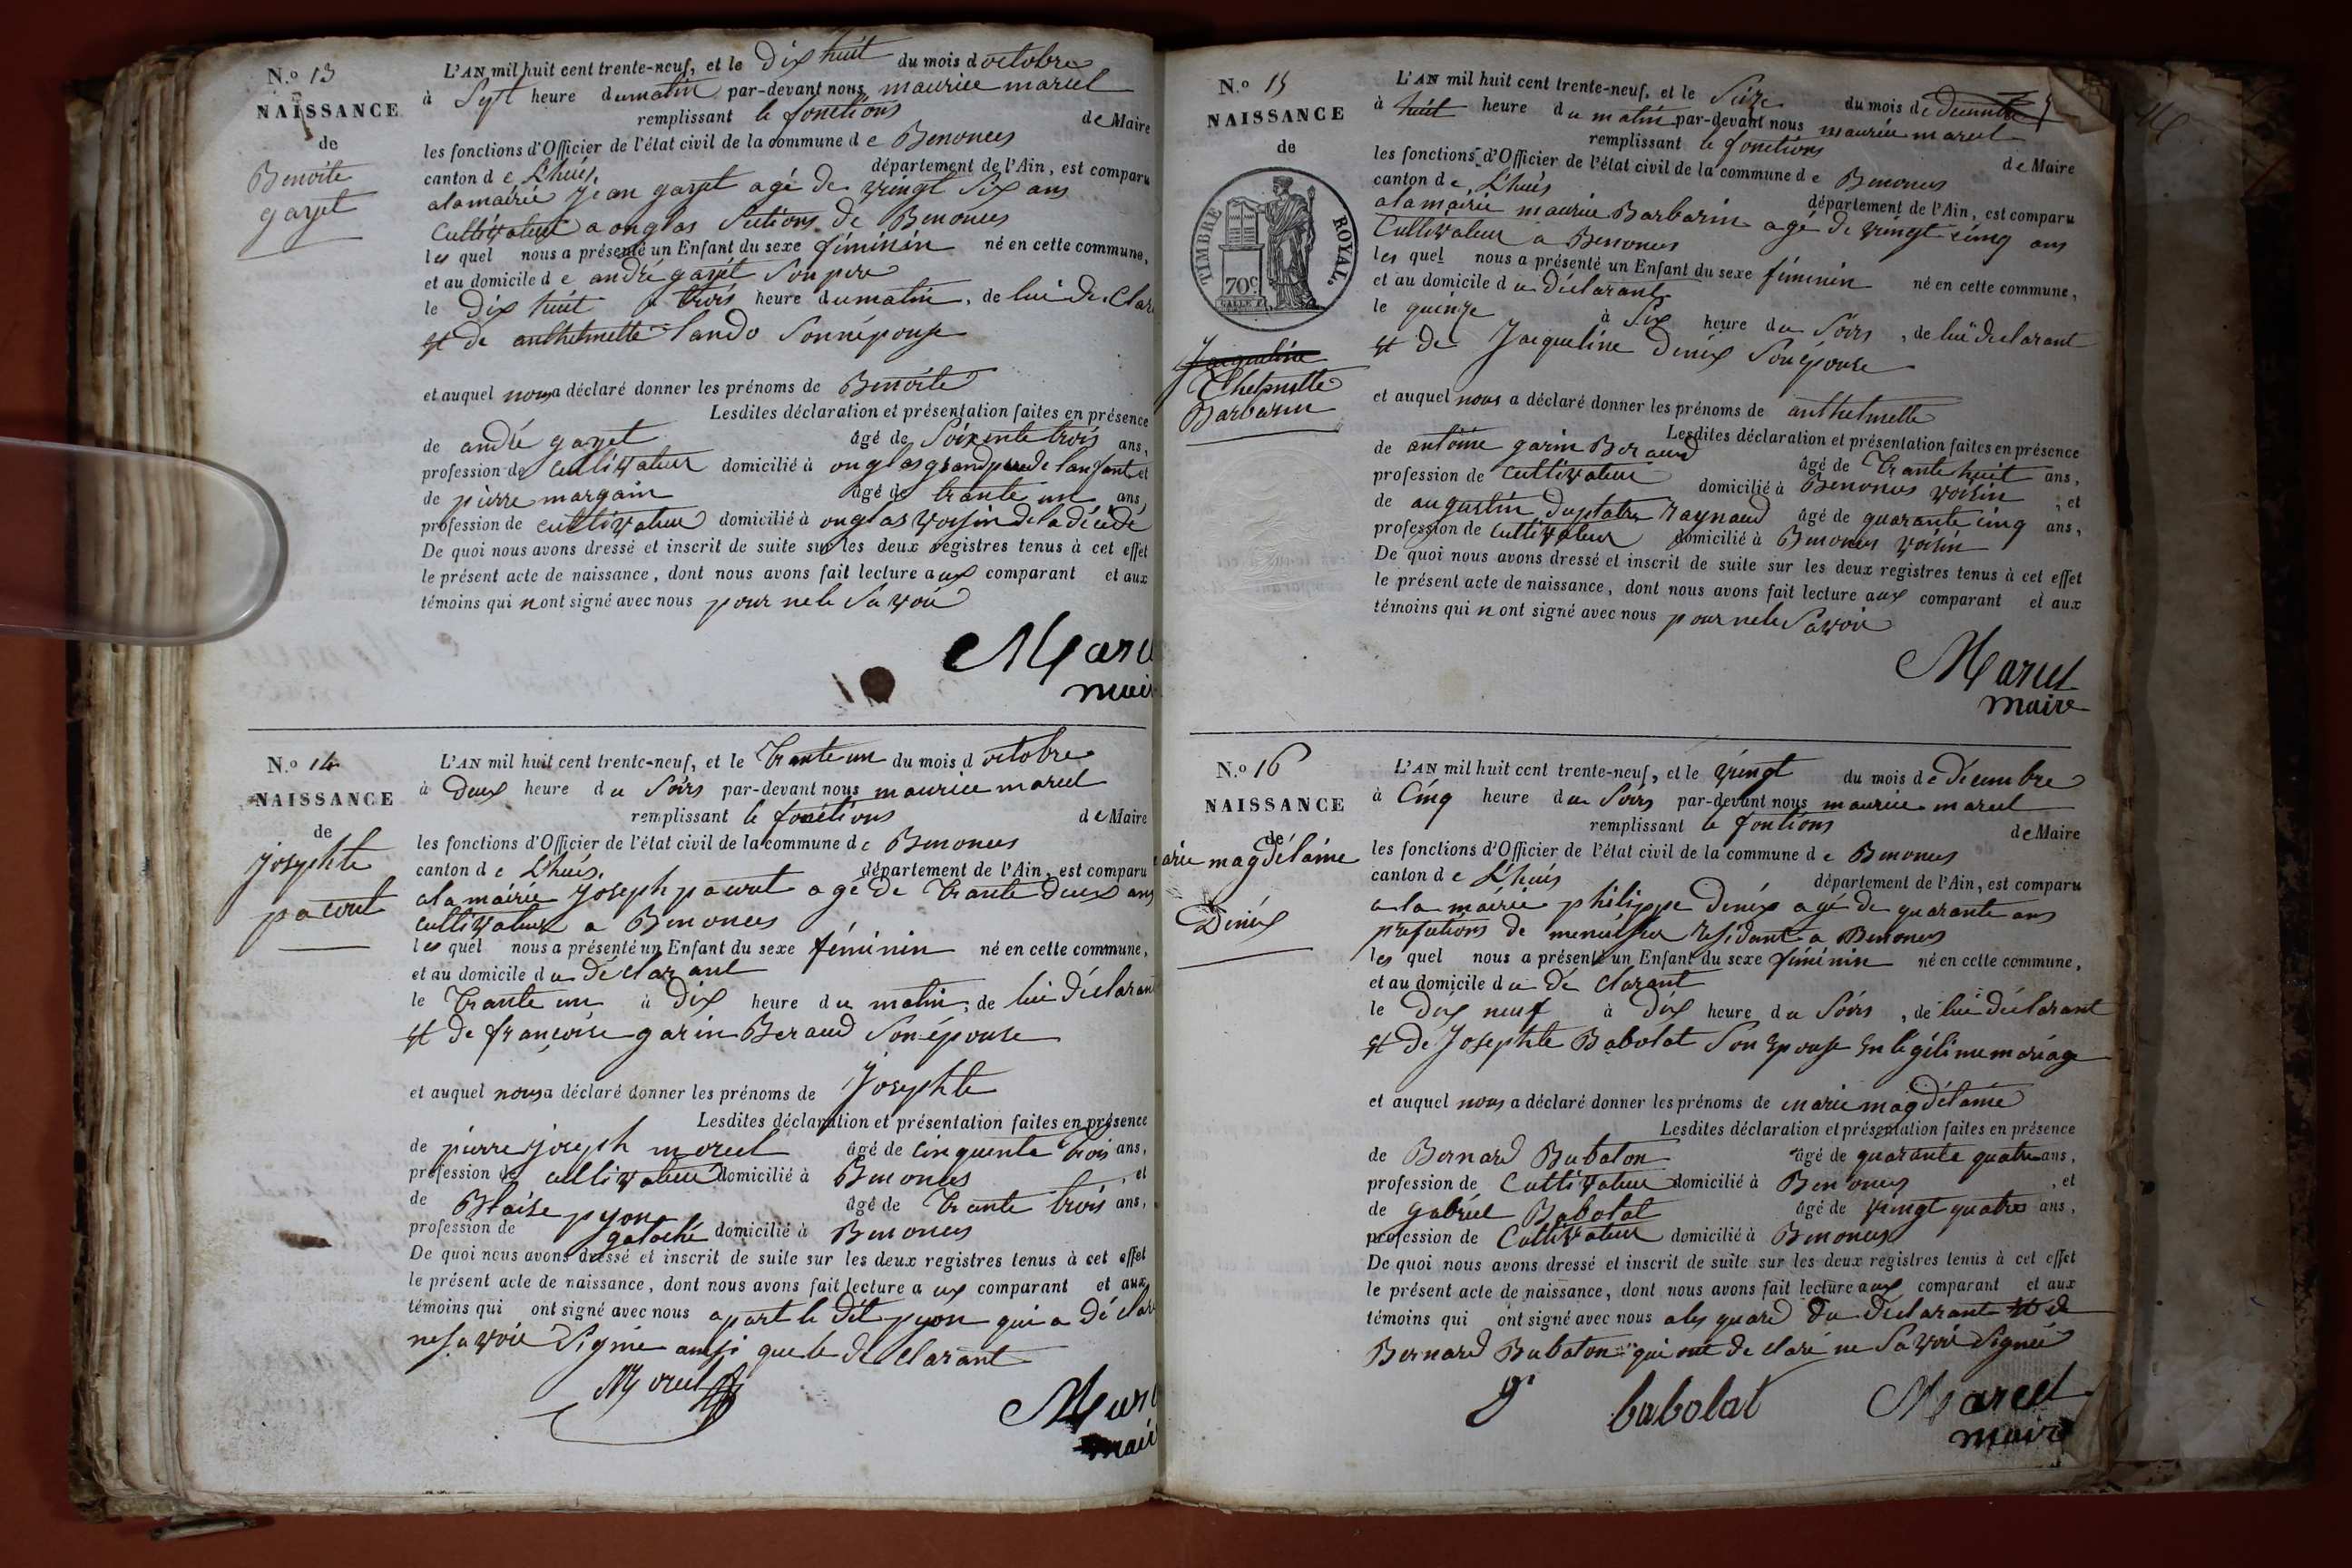 N.o 13
NAISSANCE
de
Benoite
gayet
L'AN mil huit cent trente-neuf, et le Dix huit du mois d octobre
à Sept heure du matin par-devant nous maurice marcel
remplissant le fonctions de Maire
les fonctions d'Officier de l'état civil de la commune d e Benonces
canton d e Lhuis, département de l'Ain, est comparu
a la mairie Jean gayet agé de vingt Six ans
Cultivateur a onglas Sections de Benonces
les quel nous a présenté un Enfant du sexe féminin né en cette commune,
et au domicile d e andré gayet Son pere
le Dix huit a trois heure du matin, de lui de Clar
et de anthelmette Lando Sonnépouse
et auquel nous a déclaré donner les prénoms de Benoite
Lesdites déclaration et présentation faites en présence
de andré gayet âgé de Soixente trois ans,
profession de cultivateur domicilié à onglas grand pere de lanfant et
de pierre margain âgé de trante un ans,
profession de cultivateur domicilié à onglas voisin
De quoi nous avons dressé et inscrit de suite sur les deux registres tenus à cet effet
le présent acte de naissance, dont nous avons fait lecture a ux comparant et aux
témoins qui n ont signé avec nous pour ne le Savoir
Marce
mair
N.o 14
NAISSANCE
de
josephte
pacout
L'AN mil huit cent trente-neuf, et le Trante un du mois d octobre
à Deux heure du Soirs par-devant nous maurice marcel
remplissant le fonctions de Maire
les fonctions d'Officier de l'état civil de la commune d e Benonces
canton d e Lhuis, département de l'Ain, est comparu
a la mairie Joseph pacout agé de Trante deux ans
cultivateur a Benonces
les quel nous a présenté un Enfant du sexe féminin né en cette commune,
et au domicile d u déclarant
le Trante un à Dix heure du matin, de lui déclarant
et de françoise garin Beraud Son épouse
et auquel nous a déclaré donner les prénoms de Josephte
Lesdites déclaration et présentation faites en présence
de pierre joseph morcel âgé de cinquente trois ans,
profession de cultivateur domicilié à Benonces, et
de Blaise pyon âgé de Trante trois ans,
profession de galoché domicilié à Benonces
De quoi nous avons dressé et inscrit de suite sur les deux registres tenus à cet effet
le présent acte de naissance, dont nous avons fait lecture a ux comparant et aux
témoins qui ont signé avec nous apart le dit pyon qui a déclar
ne Savoir Signie aussi que le declarant
Morcel
Marc
mair
N.o 15
NAISSANCE
de
TIMBRE ROYAL.
70c
Jacqueline
Thelmette
Barbarin
L'AN mil huit cent trente-neuf, et le Seize du mois de
à huit heure du matin par-devant nous maurice marcel
remplissant le fonctions de Maire
les fonctions d'Officier de l'état civil de la commune d e Benonces
canton d e Lhuis département de l'Ain, est comparu
a la mairie maurice Barbarin agé de vingt cinq ans
Cultivateur a Benonces
les quel nous a présenté un Enfant du sexe féminin né en cette commune,
et au domicile d u déclarant
le quinze à Six heure du Soirs, de lui déclarant
et de Jacqueline Dénix Son épouse
et auquel nous a déclaré donner les prénoms de anthelmette
Lesdites déclaration et présentation faites en présence
de antoine garin Beraud âgé de Trante huit ans,
profession de cultivateur domicilié à Benonces voisin, et
de augustin Duplatre Raynaud âgé de quarante cinq ans,
profession de cultivateur domicilié à Benonces voisin
De quoi nous avons dressé et inscrit de suite sur les deux registres tenus à cet effet
le présent acte de naissance, dont nous avons fait lecture aux comparant et aux
témoins qui n ont signé avec nous pour ne le Savoir
Marcel
maire
N.o 16
NAISSANCE
de
arie magdélaine
Dénix
L'AN mil huit cent trente-neuf, et le vingt du mois de décembre
à Cinq heure du Soirs par-devant nous maurice marcel
remplissant le fontions de Maire
les fonctions d'Officier de l'état civil de la commune d e Benonces
canton d e Lhuis département de l'Ain, est comparu
a la mairie philippe Dénix agé de quarante ans
profetions de menuisier residant a Benonces
les quel nous a présenté un Enfant du sexe féminin né en cette commune,
et au domicile d u dé clarant
le dix neuf à dix heure du Soirs, de lui déclarant
et de Josephte Babolat Son Epouse En légélime mariage
et auquel nous a déclaré donner les prénoms de marie magdélaine
Lesdites déclaration et présentation faites en présence
de Bernard Bubaton âgé de quarante quatre ans,
profession de Cultivateur domicilié à Benonces, et
de gabriel Babolat âgé de vingt quatre ans,
profession de Cultivateur domicilié à Benonces
De quoi nous avons dressé et inscrit de suite sur les deux registres tenus à cet effet
le présent acte de naissance, dont nous avons fait lecture aux comparant et aux
témoins qui ont signé avec nous a les quard du déclarant et de
Bernard Bubaton qui ont declaré ne Savoir Signié
g. babolat
Marcel
maire